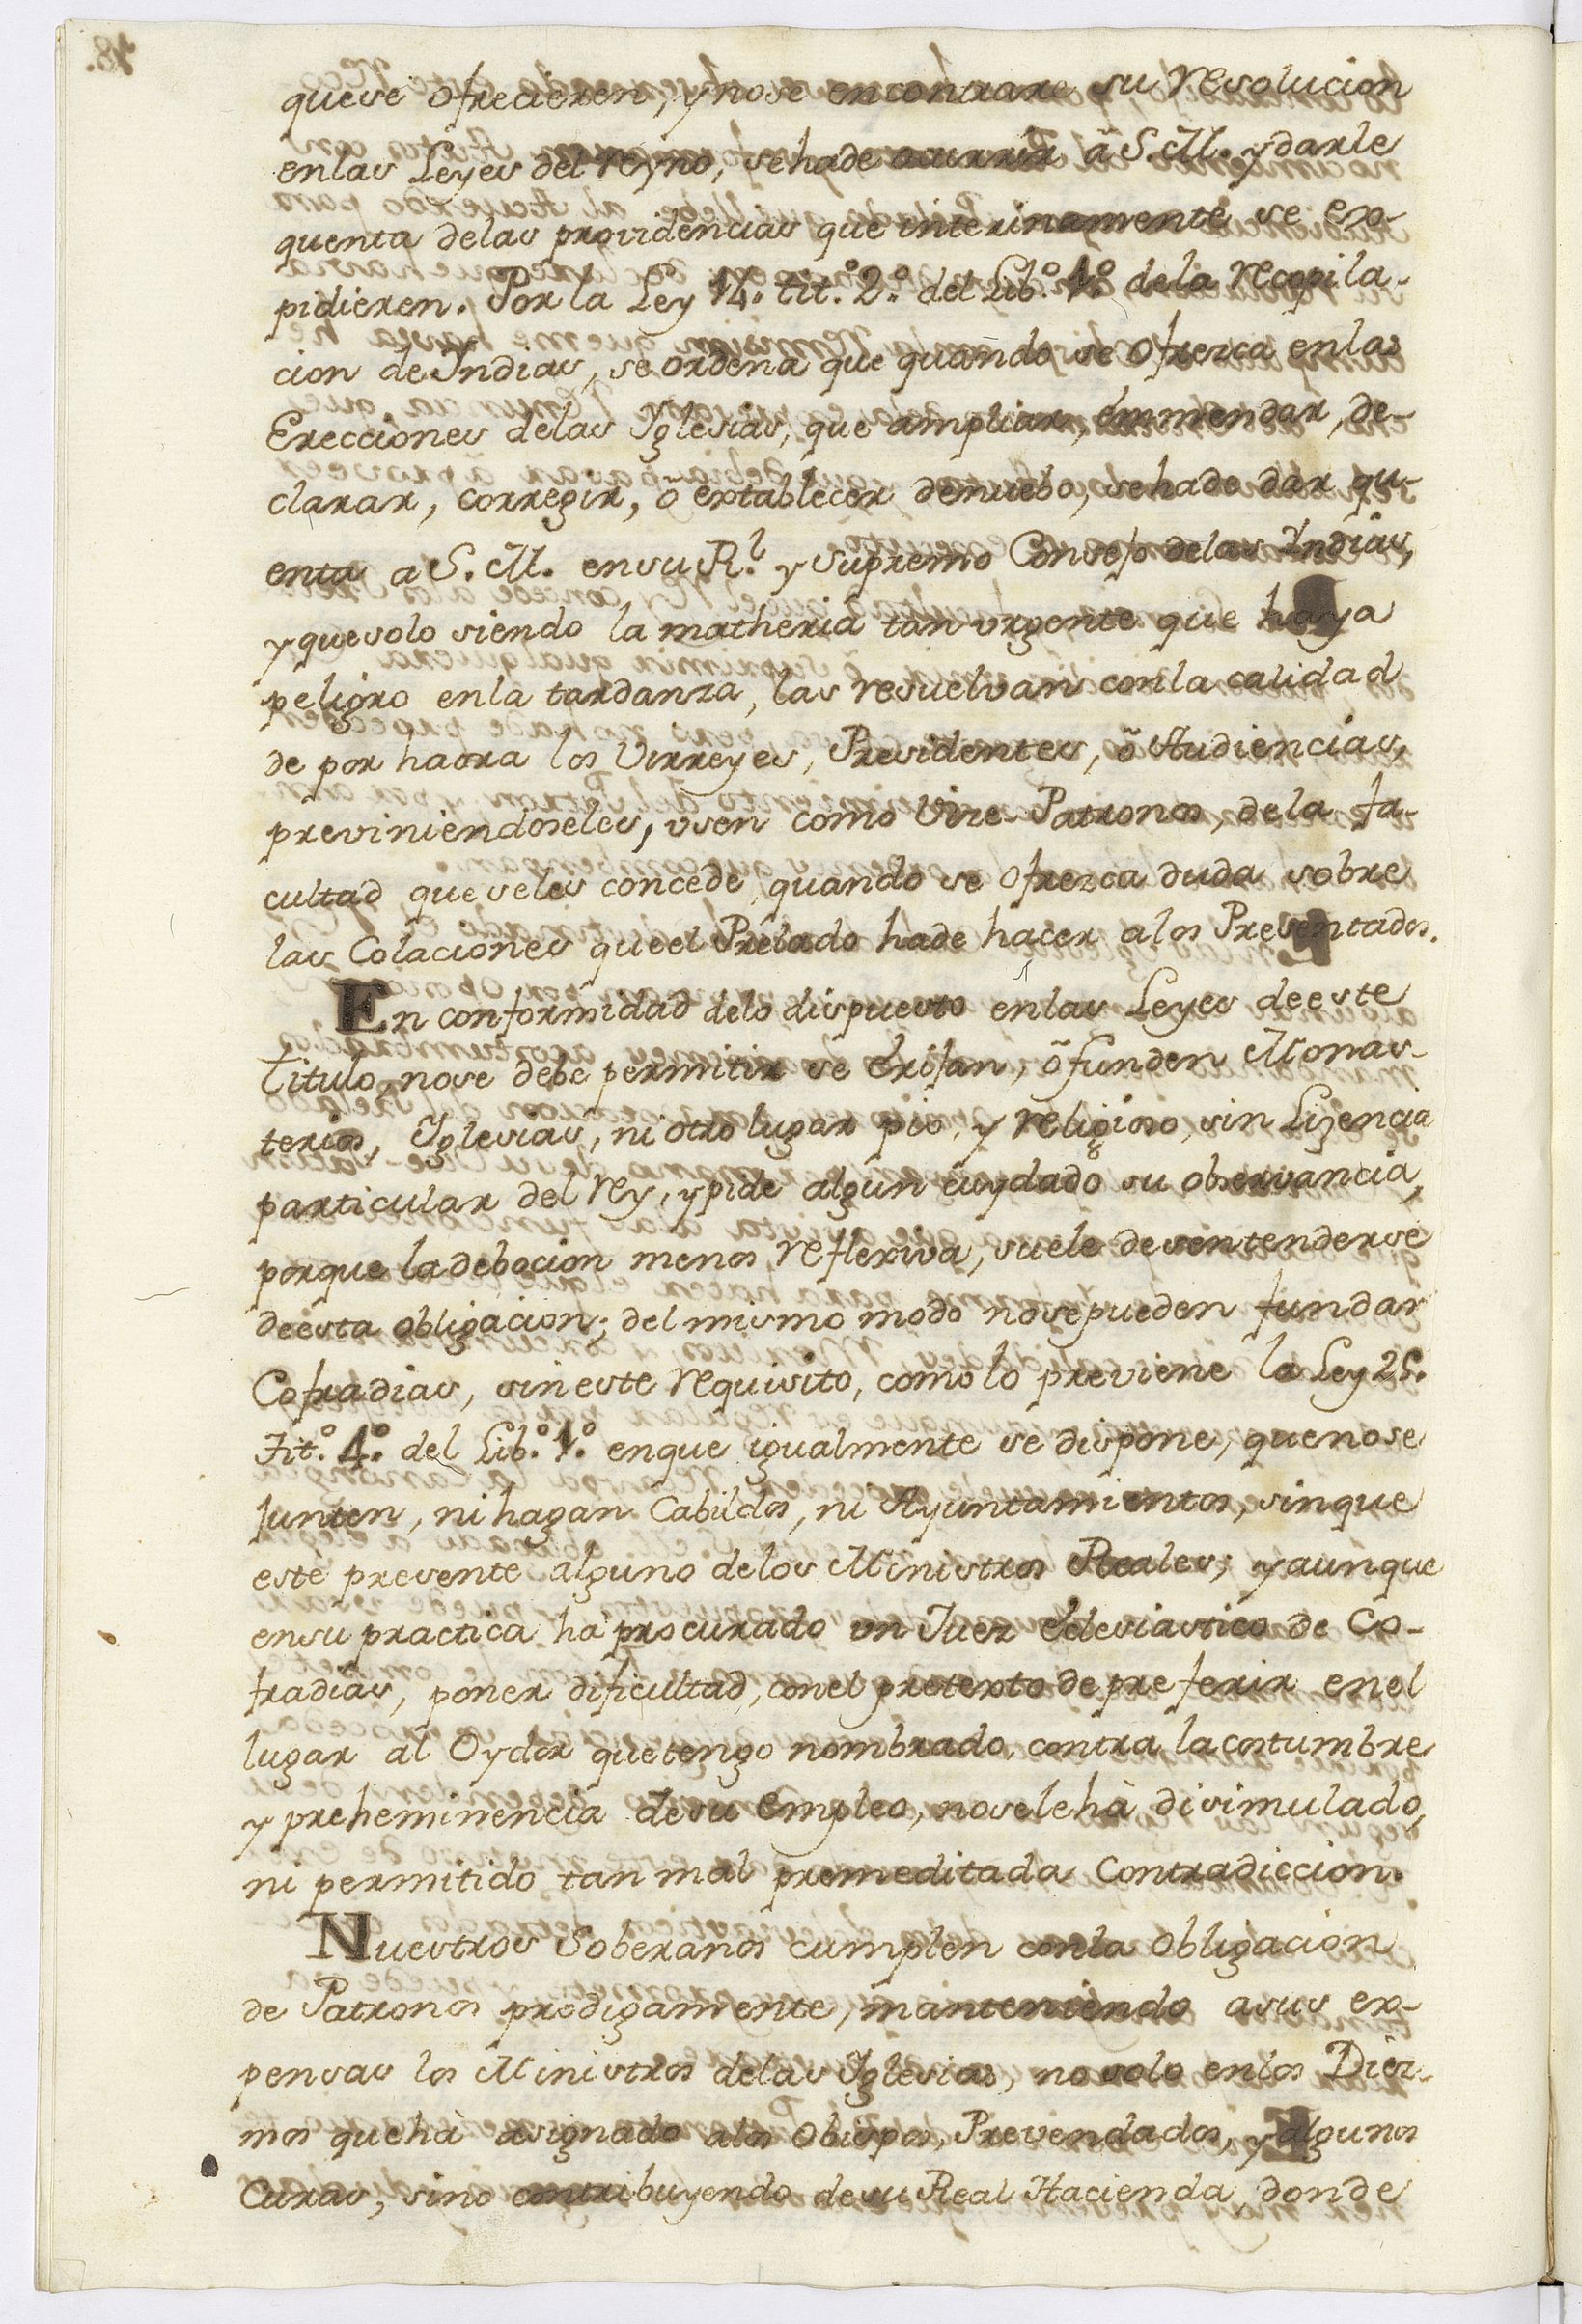 quese ofrecieren, y nose encontrare su resolucion
enlas Leyes del reyno, sehade ocurrir â S.M. y darle
quenta delas providencias que interinamente se ex-
pidieren. Por la Ley 14. tit.º 2.º del Lib.º 1.º dela recopila-
cion de Indias, se ordena que quando se ofrezca enlas
Erecciones delas Yglesias, que ampliar, emmendar, de-
clarar, corregir, ô extablecer denuebo, sehade dar qu-
enta a S.M. ensu R.l y Supremo Consejo delas Indias,
y quesolo siendo la matheria tan urgente que haya
peligro enla tardanza, las resuelvan conla calidad
de por haora los Virreyes, Presidentes, ô Audiencias,
previniendoseles, usen como Vize Patronos, dela fa-
cultad queseles concede, quando se ofrezca duda sobre
las Colaciones queel Prelado hade hacer alos Presentados.
En conformidad delo dispuesto enlas Leyes deeste
Titulo, nose debe permitir se erijan, ô funden Monas-
terios, Yglesias, ni otro lugar pio, y religioso, sin Lizencia
particular del Rey, y pide algun cuydado su observancia,
porque la debocion menos reflexiva, suele desentenderse
deesta obligacion; del mismo modo nosepueden fundar
Cofradias, sineste requisito, como lo previene la Ley 25.
Tit.º 4.º del Lib.º 1.º enque igualmente se dispone, quenose
junten, ni hagan Cabildos, ni Ayuntamientos, sinque
esté presente alguno delos Ministros Reales; y aunque
ensu practica há procurado un Juez Eclesiastico de Co-
fradias, poner dificultad, conel pretexto de preferir enel
lugar al Oydor quetengo nombrado, contra la costumbre
y preheminencia desu empleo, nosele hà disimulado,
ni permitido tan mal premeditada Contradiccion.
Nuestros Soberanos cumplen conla obligacion
de Patronos prodigamente, manteniendo asus ex-
pensas los Ministros delas Yglesias, no solo enlos Diez-
mos quehà asignado alos Obispos, Prevendados, y algunos
Curas, sino contribuyendo desu Real Hacienda donde